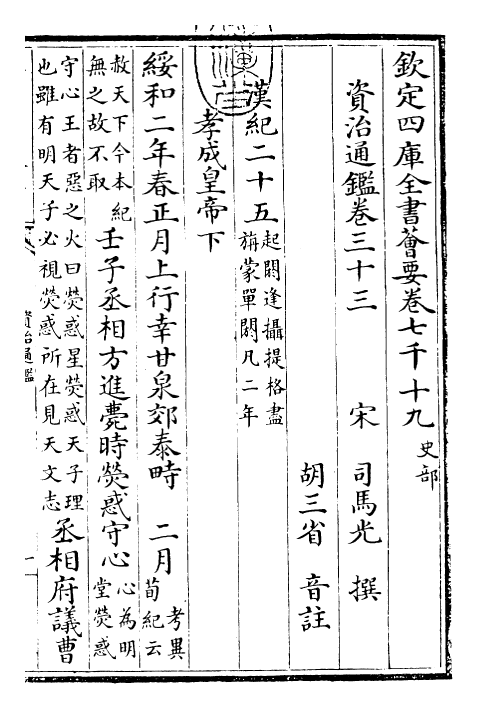 欽定四庫全書薈要卷七千十九 史部
資治通鑑卷三十三 宋 司馬光 撰
胡三省 音註
漢紀二十五 起閼逢攝提格盡
旃蒙單閼凡二年
孝成皇帝下
綏和二年春正月上行幸甘泉郊泰畤 二月 考異
荀紀云
赦天下今本紀
無之故不取 壬子丞相方進薨時熒惑守心 心為明
堂熒惑
守心王者惡之火曰熒惑星熒惑天子理
也雖有明天子必視熒惑所在見天文志 丞相府議曹
資治通鑑
一